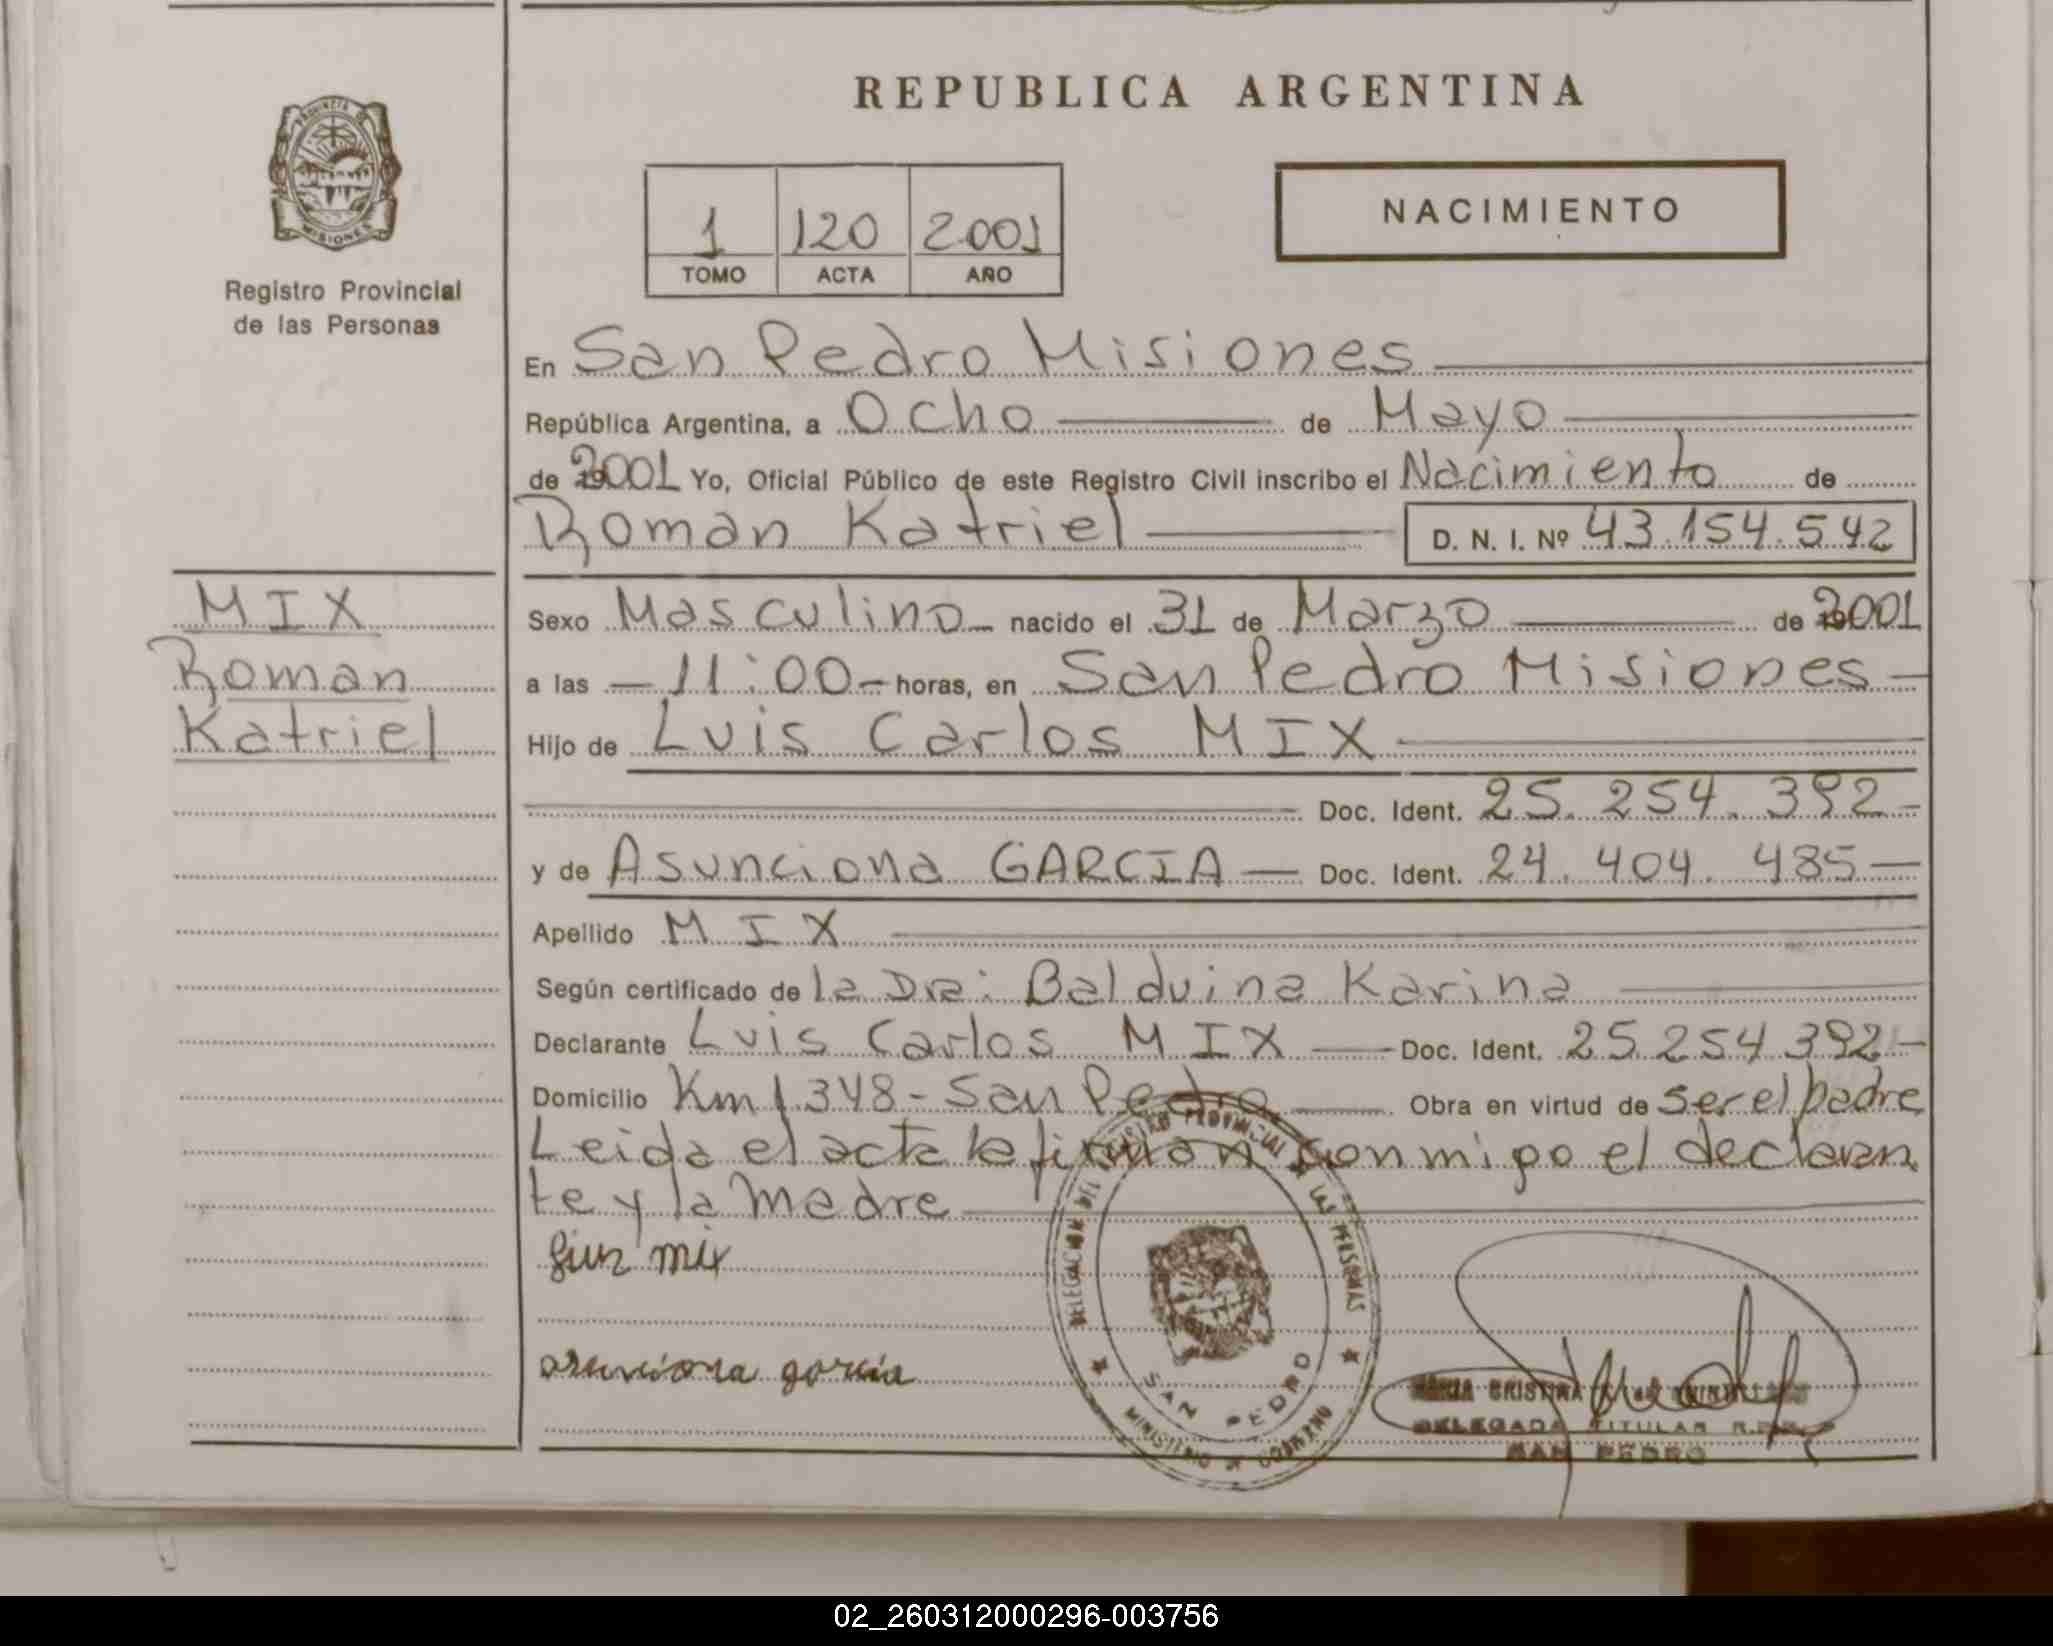 REPUBLICA ARGENTINA
PROVINCIA DE
MISIONES
Registro Provincial
de las Personas
1 120 2001
TOMO ACTA AÑO
NACIMIENTO
En San Pedro Misiones
República Argentina, a Ocho de Mayo
de 2001 Yo, Oficial Público de este Registro Civil inscribo el Nacimiento de
Roman Katriel D. N. I. Nº 43.154.542
MIX
Roman
Katriel
Sexo Masculino nacido el 31 de Marzo de 2001
a las 11:00 horas, en San Pedro Misiones
Hijo de Luis Carlos MIX
Doc. Ident. 25.254.392
y de Asunciona GARCIA Doc. Ident. 24.404.485
Apellido MIX
Según certificado de la Dra: Balduina Karina
Declarante Luis Carlos MIX Doc. Ident. 25.254.392
Domicilio Km 1.348 - San Pedro Obra en virtud de ser el padre
Leida el acta la firman conmigo el declaran
te y la madre
mix
asunciona garcia
DELEGACION DEL REGISTRO PROVINCIAL DE LAS PERSONAS
SAN PEDRO
MINISTERIO DE GOBIERNO
MARIA CRISTINA
DELEGADA TITULAR R.P.P.
SAN PEDRO
02_260312000296-003756